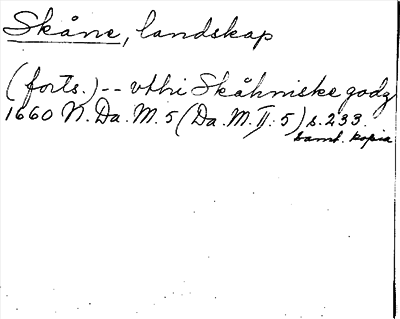 Skåne, landskap
(forts.) -- vthi Skåhniske godz
1660 N. Da. M. 5 (Da. M. II. 5) s. 233.
samt. kopia